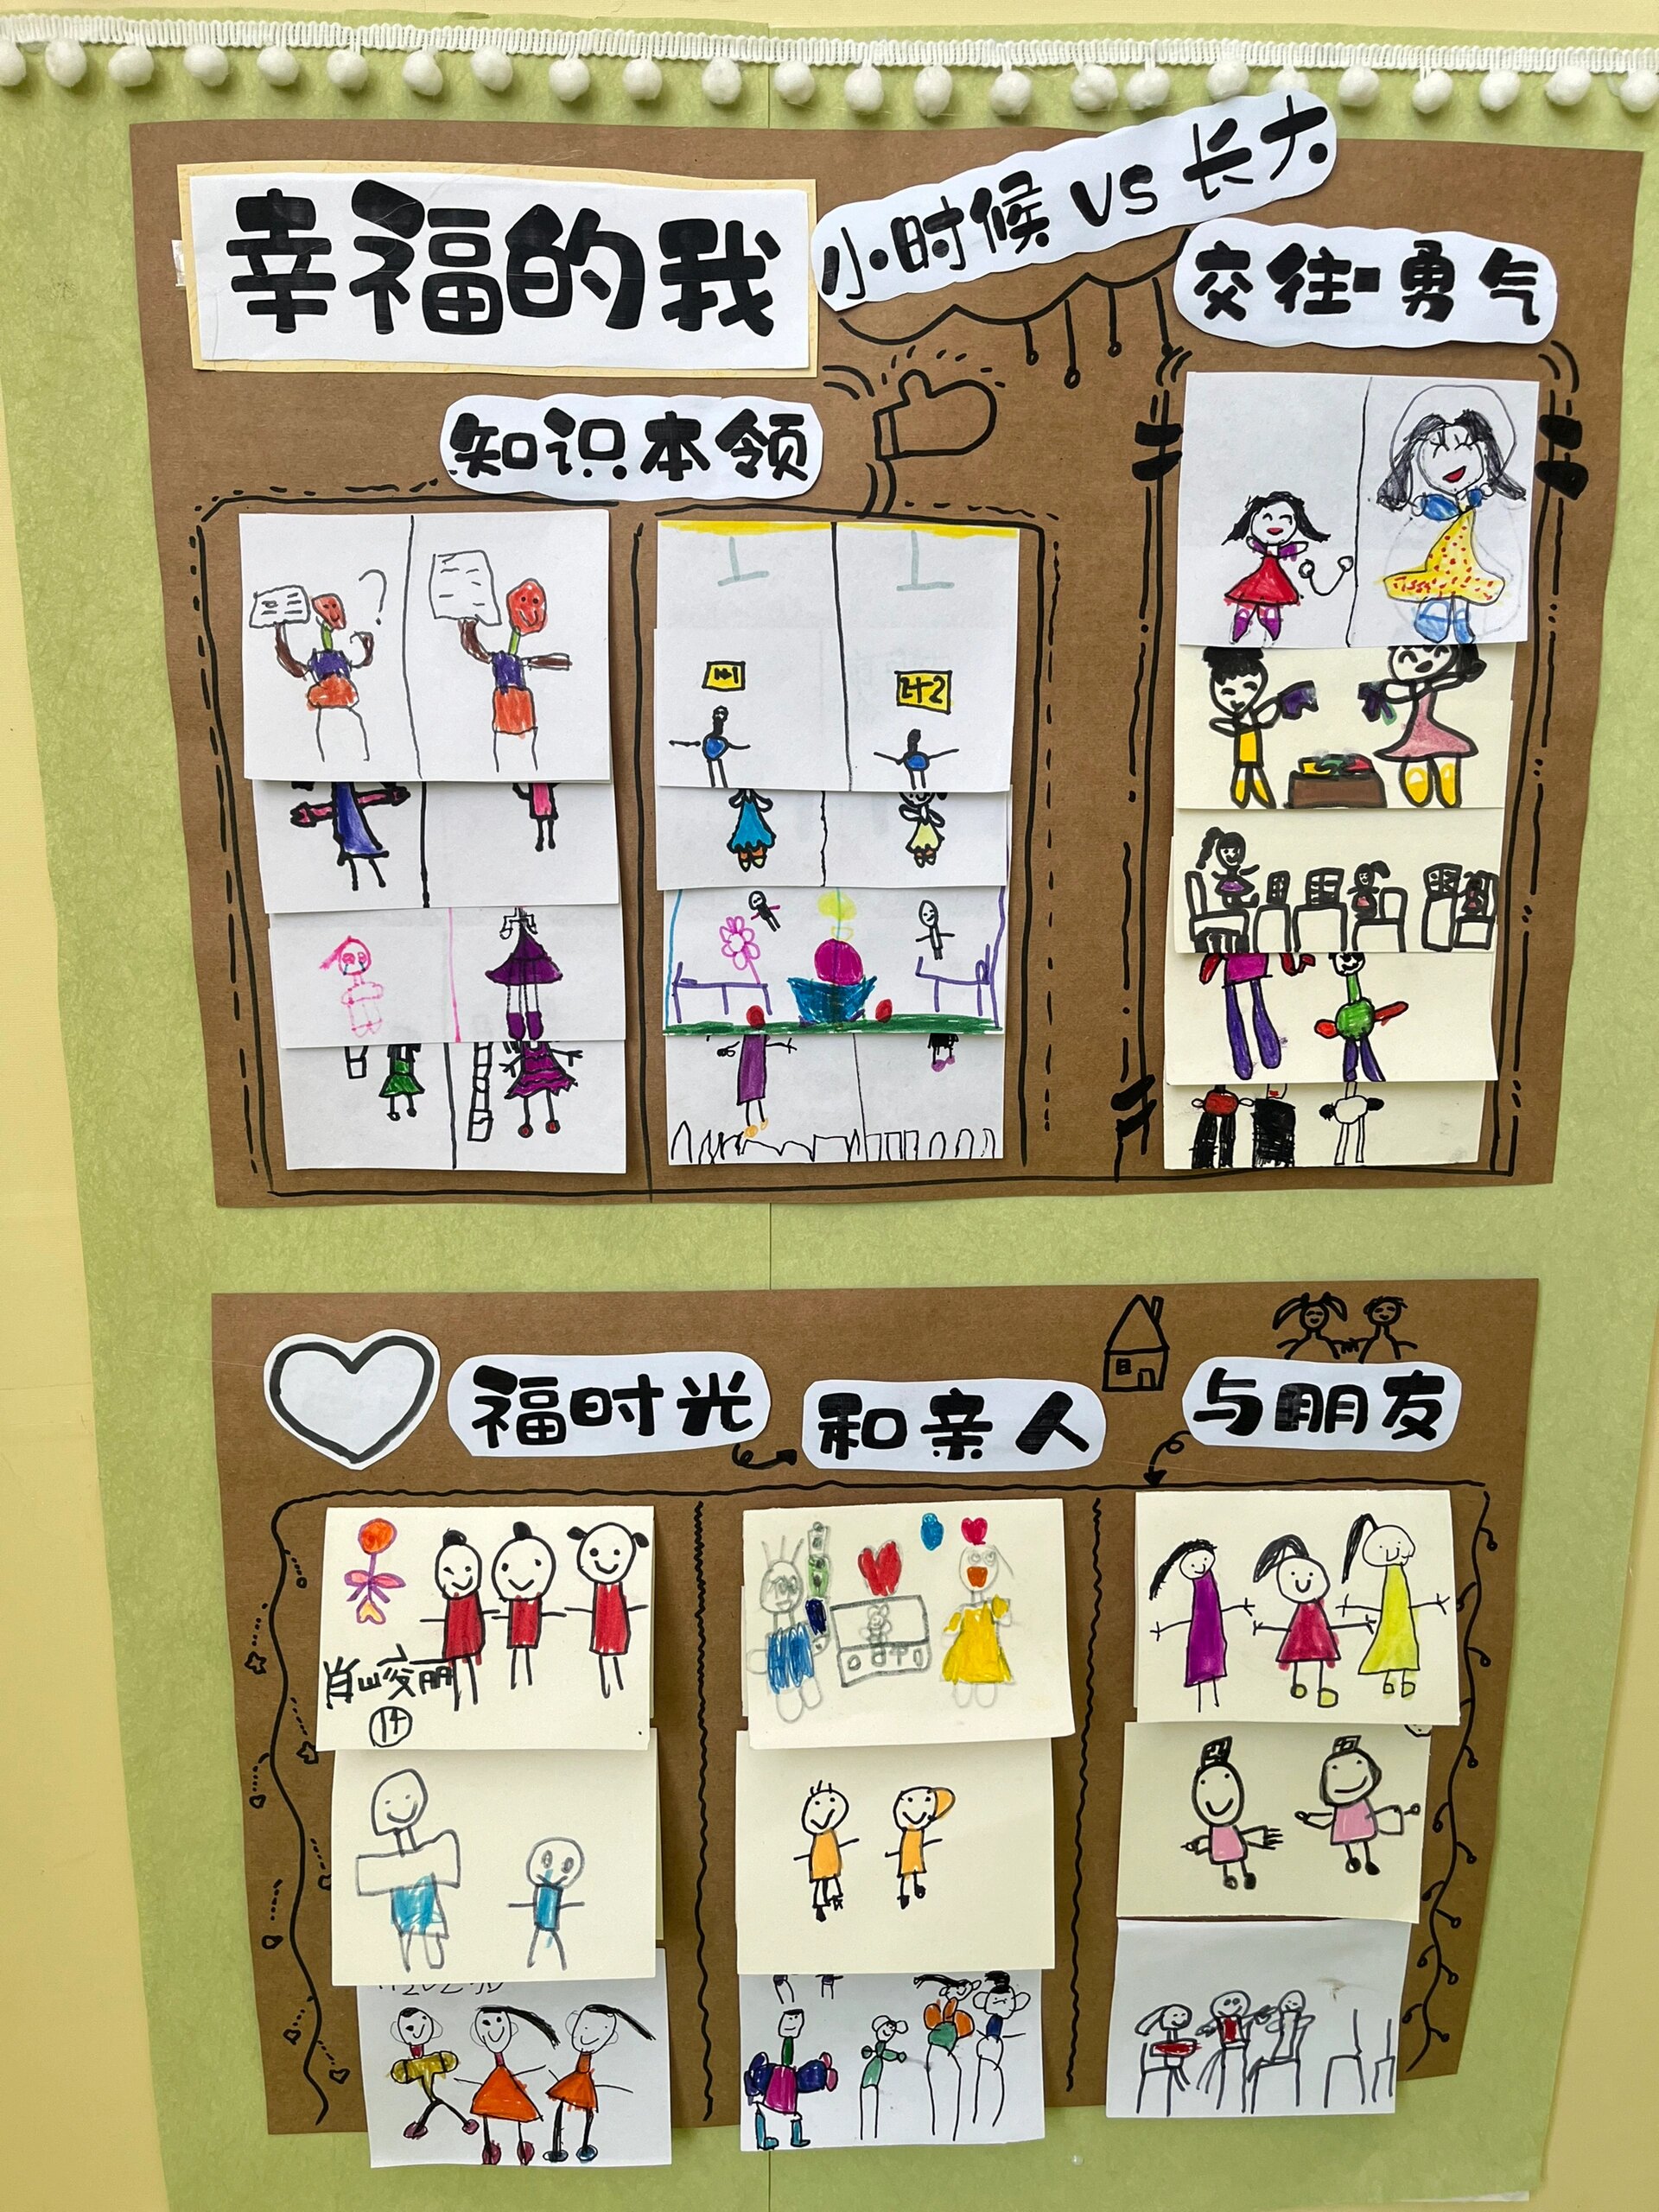 幸福的我
小时候 VS 长大
交往·勇气
知识本领
1+1
2+2
福时光
和亲人
与朋友
14